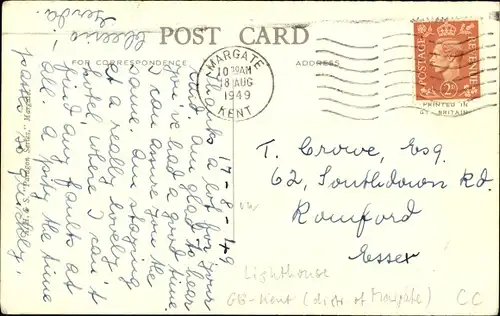 POST CARD
FOR CORRESPONDENCE
ADDRESS
MARGATE
10 30AM
18 AUG
1949
KENT
POSTAGE
REVENUE
2D
PRINTED IN
GT. BRITAIN
17-8-49
Thanks a lot for your
card am glad to hear
you've had a good time
I can assure you the
same. Am staying
at a really lovely
hotel where I can't
find any faults at
all. A pity the time
passes so quickly.
Cheerio!
Gerda.
T. Crowe, Esq.
62, Southdown Rd
Romford
Essex
Lighthouse
GB-Kent (digs of Margate)
CC